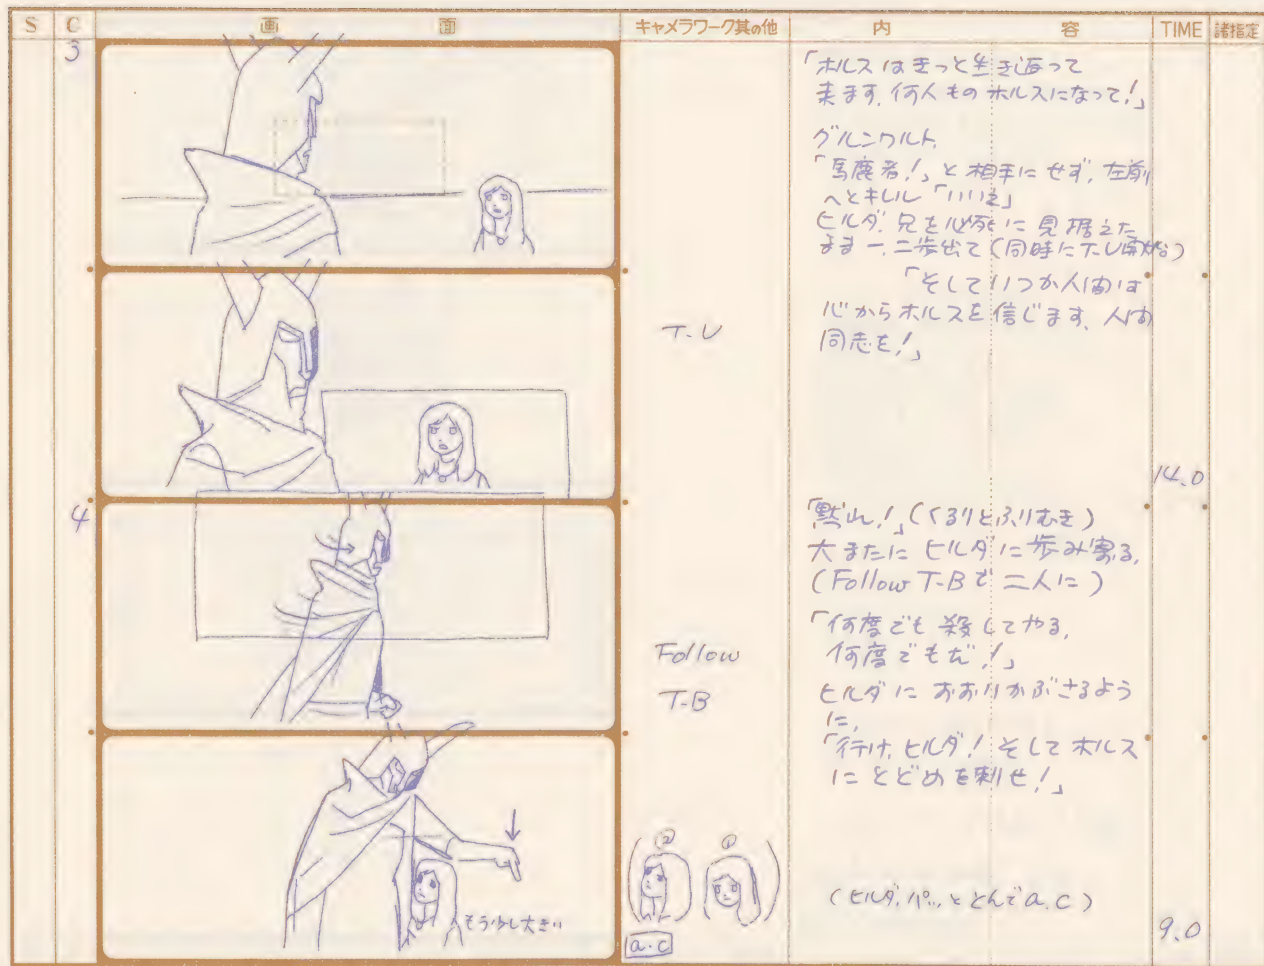 S C 画 面 キャメラワーク其の他 内 容 TIME 諸指定
3
「ホルスはきっと生き返って
来ます、何人ものホルスになって!」
グルンワルト、
「馬鹿者!」と相手にせず、左前
へとキレル「いいえ」
ヒルダ、兄を必死に見据えた
まま一、二歩出て(同時にT.U開始)
「そしていつか人間は
心からホルスを信じます、人間
同志を!」
T.U
14.0
4
「黙れ!」(くるりとふりむき)
大またにヒルダに歩み寄る。
(Follow T-Bで二人に)
「何度でも殺してやる、
何度でもだ!」
Follow
T-B
ヒルダにおおいかぶさるよう
に、
「行け、ヒルダ!そしてホルス
にとどめを刺せ!」
② ①
もう少し大きい
a.c
(ヒルダ、パッととんでa.c)
9.0